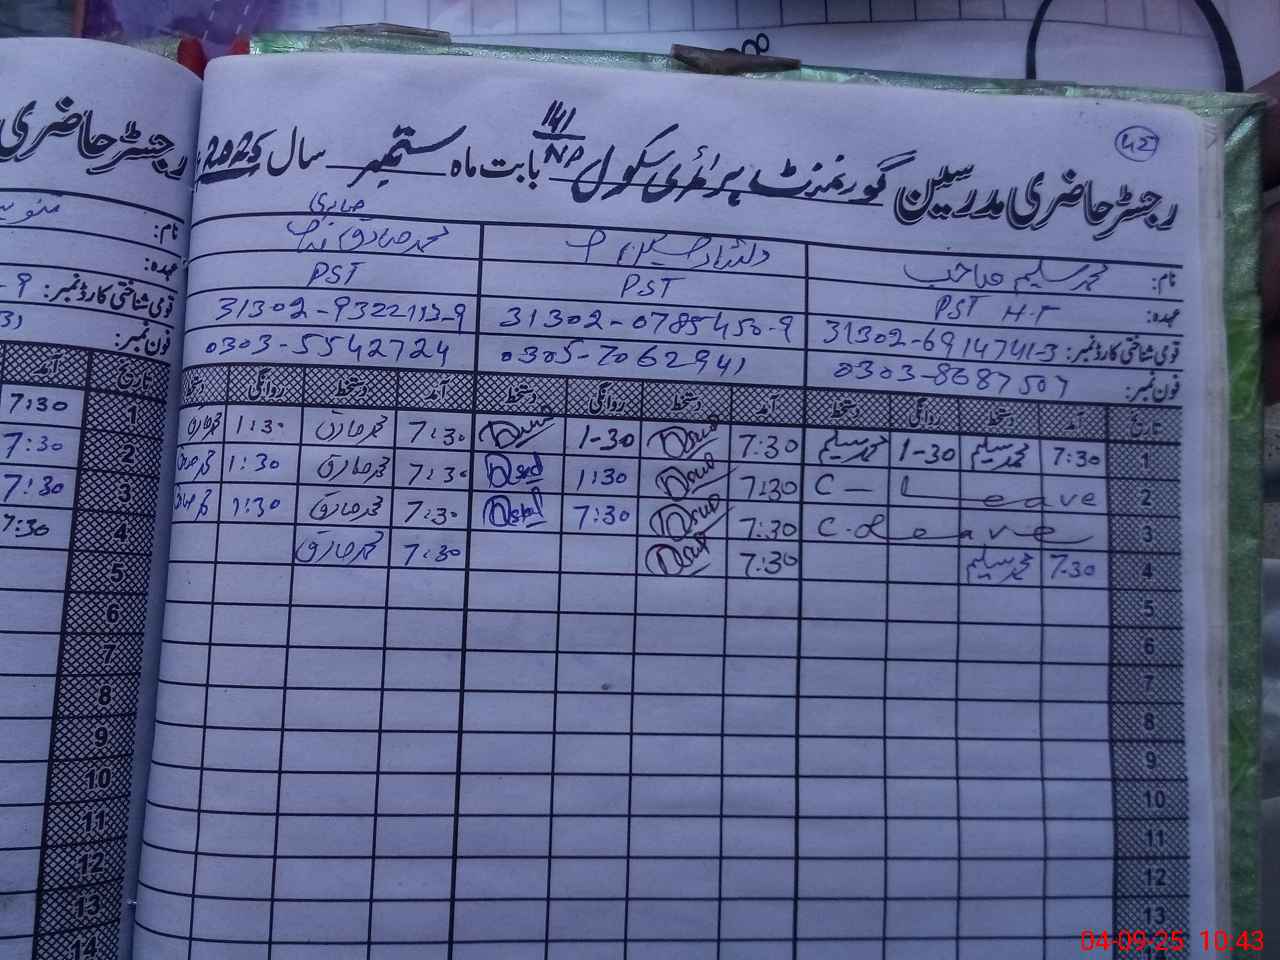 رجسٹر حاضری
رجسٹر حاضری مدرسین گورنمنٹ پرائمری سکول 141 NP بابت ماہ ستمبر سال 2025
42
نام: محمد سلیم صاحب
محمد صادق
عہدہ: PST H.T PST PST
قومی شناختی کارڈ نمبر: 31302-6914741-3 31302-0785450-9 31302-9322113-9
فون نمبر: 0303-8687507 0305-7062941 0303-5542724
تاریخ آمد دستخط روانگی دستخط آمد دستخط روانگی دستخط آمد دستخط روانگی دستخط
1 7:30 محمد سلیم 1-30 محمد سلیم 7:30 1-30 7:30 محمد صادق 1:30 محمد صادق
2 C - Leave 7:30 1:30 7:30 محمد صادق 1:30 محمد صادق
3 C.Leave 7:30 7:30 7:30 محمد صادق 1:30 محمد صادق
4 7.30 محمد سلیم 7:30 7:30 محمد صادق
5
6
7
8
9
10
11
12
13
14
نام:
عہدہ:
قومی شناختی کارڈ نمبر:
فون نمبر:
تاریخ آمد
1 7:30
2 7:30
3 7:30
4 7:30
5
6
7
8
9
10
11
12
13
14
04-09-25 10:43